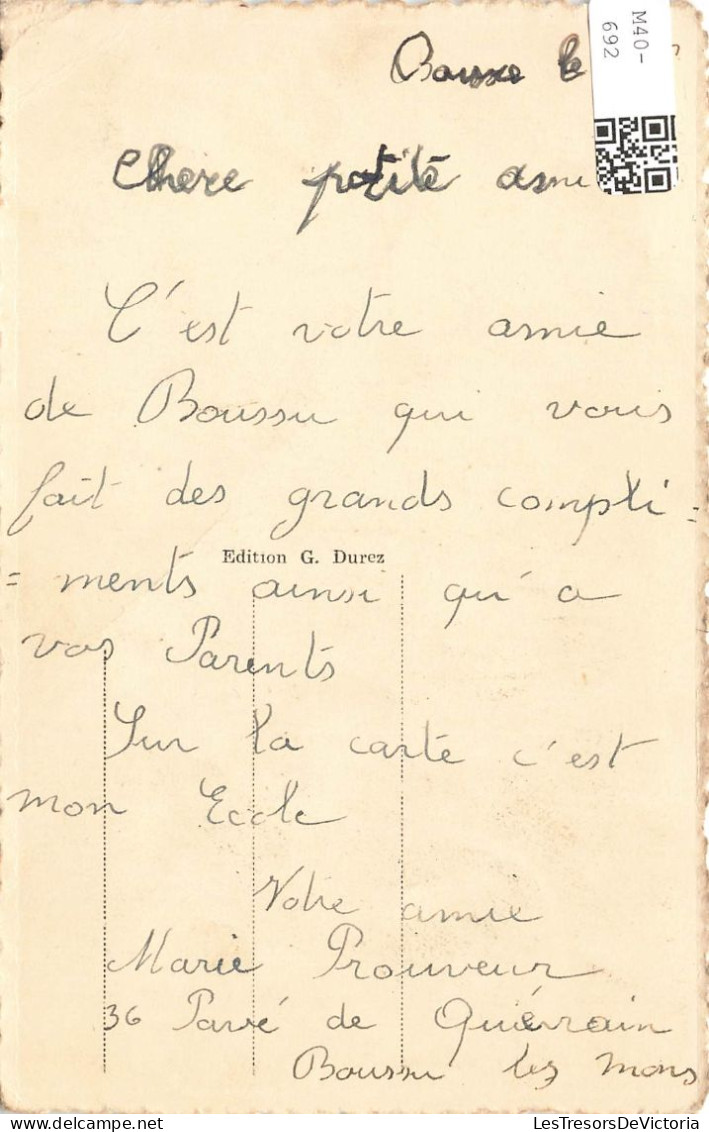 M40-
692
le
Chere petite ami
C'est votre amie
de Boussu qui vous
fait des grands compli=
Edition G. Durez
=ments ainsi qu'a
vos Parents
Sur la carte c'est
mon Ecole
Votre amie
Marie Prouveur
36 Pavé de Quiévrain
Boussu lez mons
LesTresorsDeVictoria